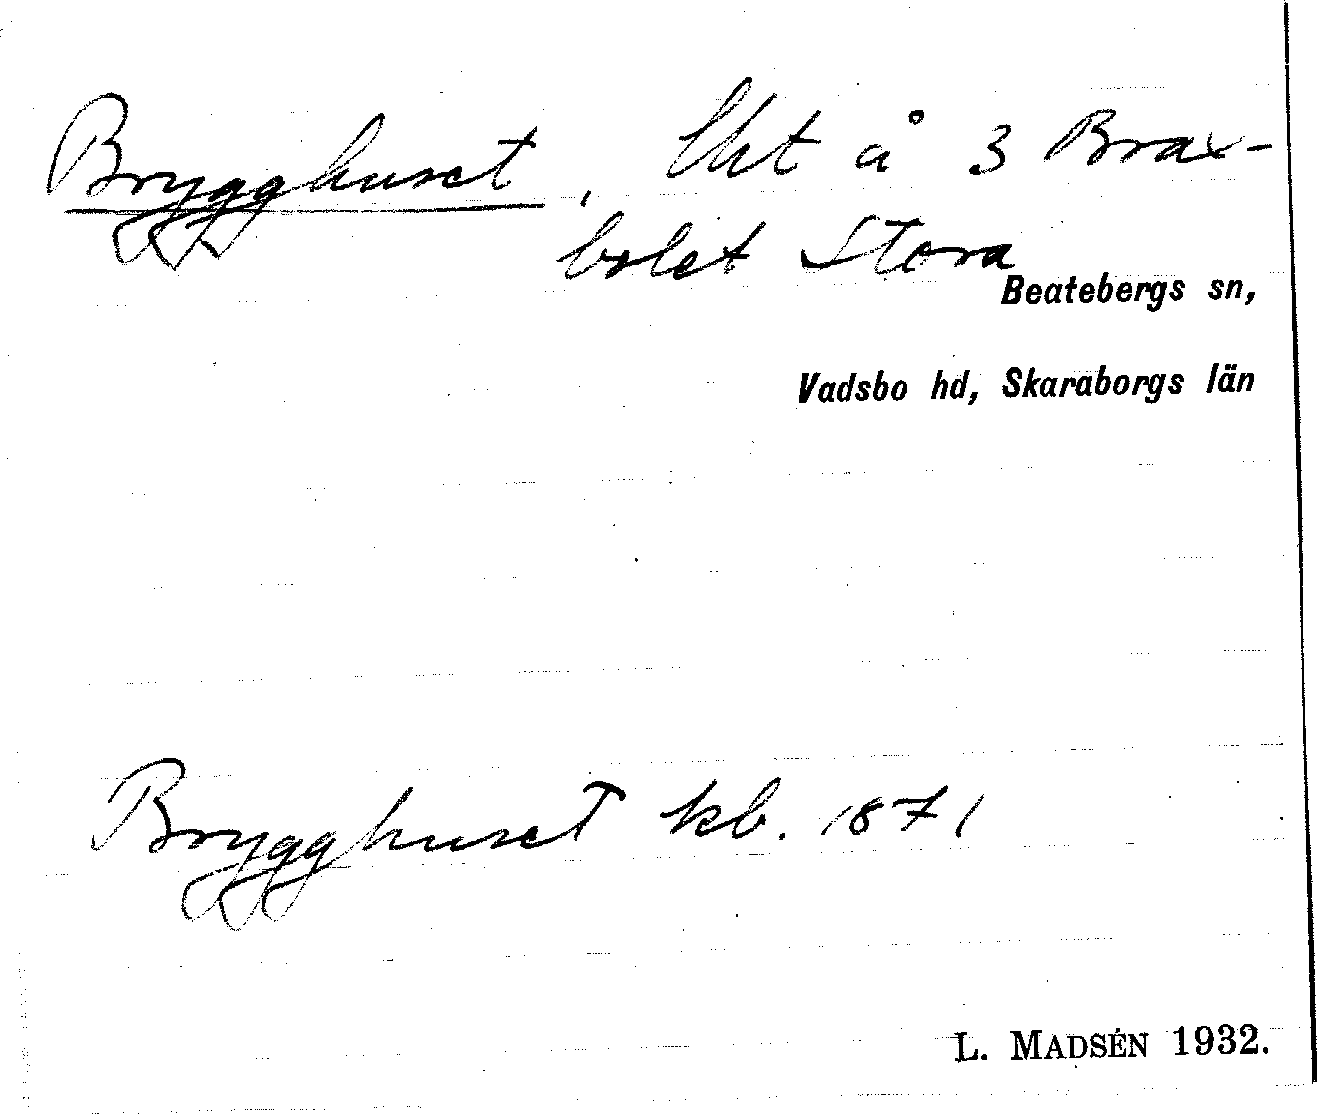 Brygghuset, lht å 3 Brax-
bolet Stora
Beatebergs sn,
Vadsbo hd, Skaraborgs län
Brygghuset kb. 1871
L. MADSÉN 1932.